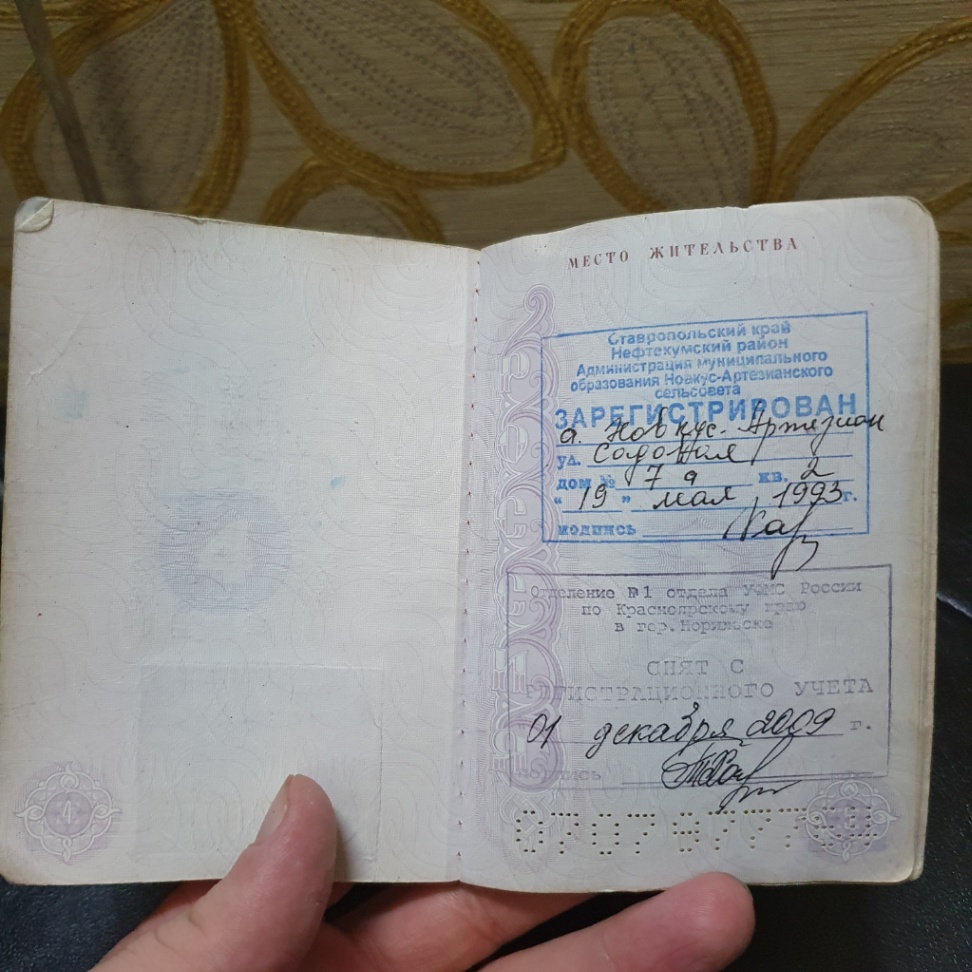 МЕСТО ЖИТЕЛЬСТВА
Ставропольский край
Нефтекумский район
Администрация муниципального
образования Новкус-Артезианского
сельсовета
ЗАРЕГИСТРИРОВАН
а. Новкус-Артезиан
ул.
дом № 79 кв. 2
"19" мая 1993 г.
подпись
Отделение №1 отдела УФМС России
по Красноярскому краю
в гор. Норильске
СНЯТ С
РЕГИСТРАЦИОННОГО УЧЕТА
01 декабря 2009 г.
подпись
4